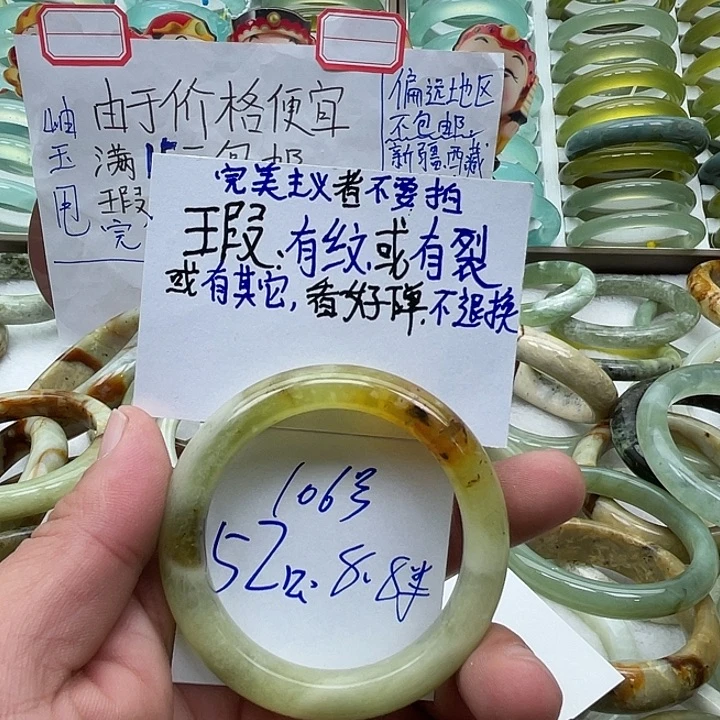 岫玉甩
由于价格便宜
满
包邮
瑕
完
偏远地区
不包邮
新疆.西藏
完美主义者不要拍
瑕.有纹.或有裂
或有其它,看好单.不退换
106号
52 8.8